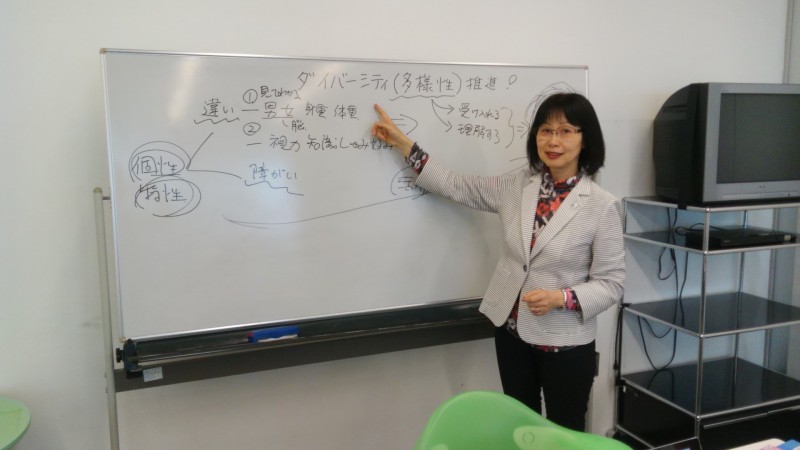 ダイバーミティ(多様性)推進!
違い ― ①見てわかる
男女 身重 体重
服
受け入れる
理解する
②
― 視力 知識
個性
特性
障がい